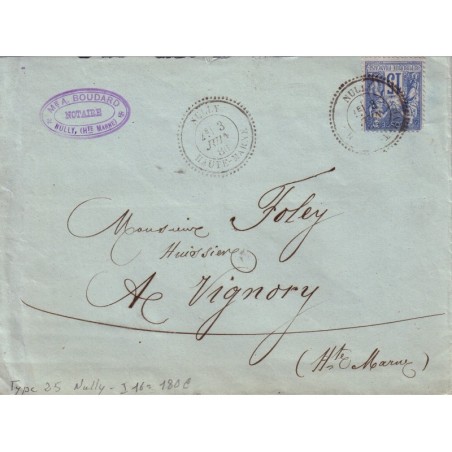 Me A. BOUDARD
NOTAIRE
NULLY, (HTE MARNE)
NULLY
3
JUIN
HAUTE-MARNE
NULLY
15
Monsieur Foley
Huissier
A Vignory
(Hte Marne)
Type 25 Nully - J 16 = 180€